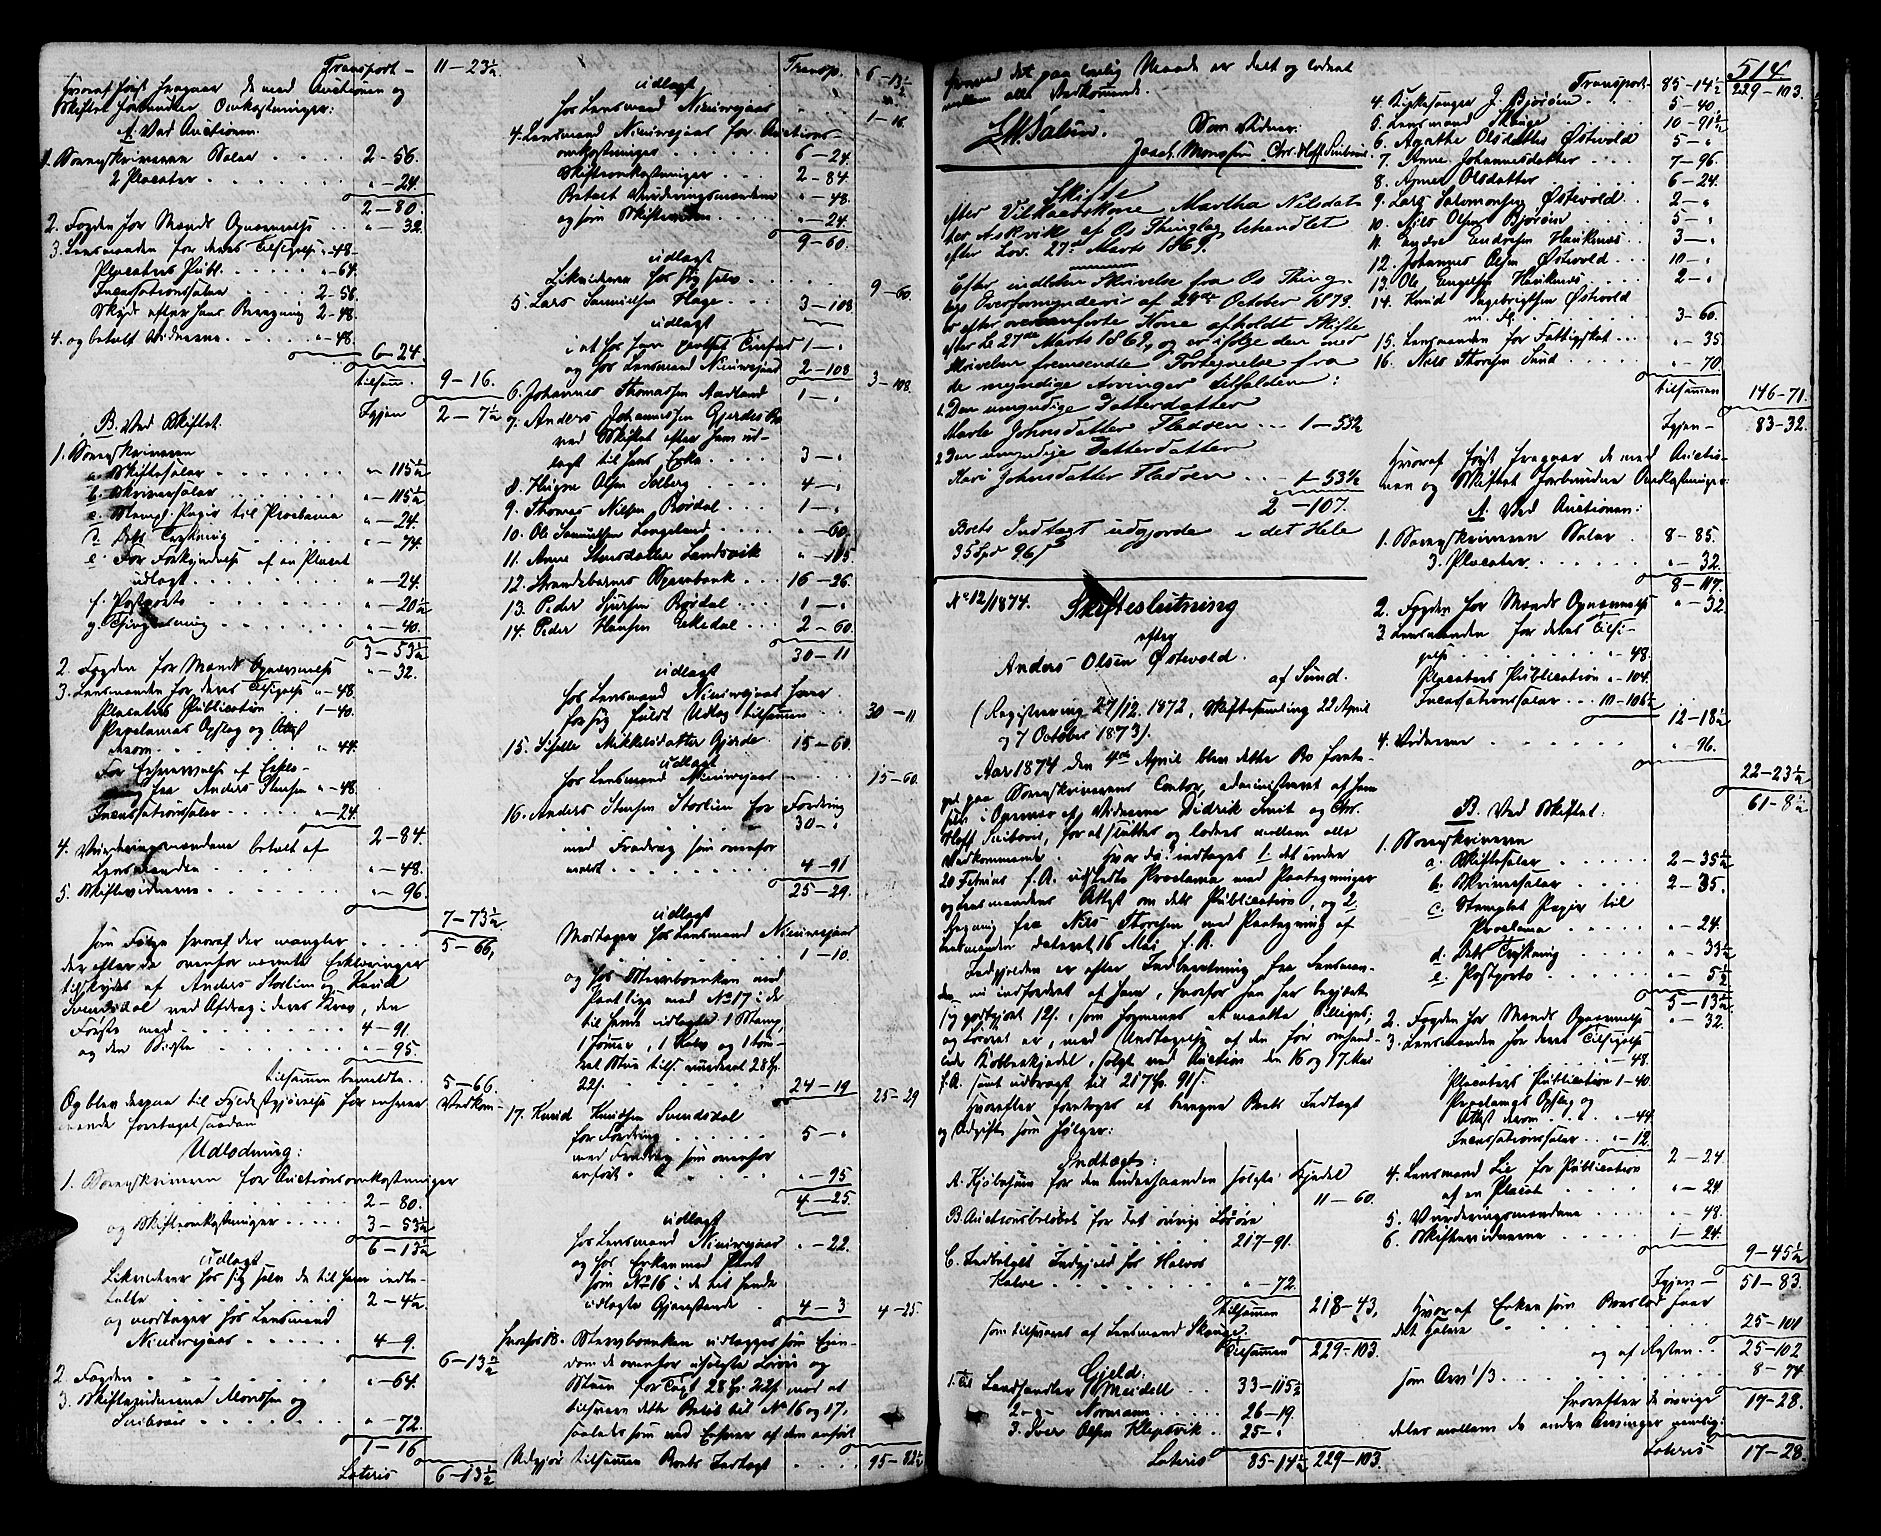 Transport - 11-23½
Hvoraf først fragaar de med Auctionen og
Skiftet forbundne Omkostninger:
A. Ved Auctionen.
1. Sorenskriveren Salær 2-56.
2 Placater „-24.
2-80.
2. Fogden for Mænds Opnævnelse „-32.
3. Lensmanden for deres Tilsigelse „-48
Placatens Publ. „-64.
Incassationssalær 2-56.
Skyds efter hans Beregning 2-48.
4. og betalt Vidnerne „-48.
6-24.
tilsam. 9-16.
Igjen 2-7½
B. Ved Skiftet.
1. Sorenskriveren
a. Skiftesalær „-115½
b. Skriversalær „-115½
c. Stempl. Papir til Proclama „-24.
d. Dets Trykning „-74.
e. For Forkyndelse af en Placat
udlagt „-24.
f. Postporto „-20½
g. Thinglæsning „-40.
3-53½
2. Fogden for Mænds Opnævnelse „-32.
3. Lensmanden for deres Tilsigelse „-48
Placatens Publication 1-40.
Proclamas Opslag og Attest
derom „-44.
For Erhvervelse af Erklæ-
ring fra Anders Stensen „-48.
Incassationssalær „-24.
2-84.
4. Vurderingsmændene betalt af
Lensmanden „-48.
5. Skiftevidnerne „-96.
7-73½
som Følge hvoraf der mangler 5-66,
der efter de ovenfor nævnte Erklæringer
tilskydes af Anders Storlien og Knud
Svendsdal ved Afdrag i deres Krav, den
Første med 4-91.
og den Sidste „-95.
tilsammen bemeldte 5-66.
Og blev derpaa til Fyldestgjørelse for enhver Vedkom-
mende foretaget saadan
Udlodning:
1. Sorenskriveren for Auctionsomkostninger
2-80.
og Skifteomkostninger 3-53½
6-13½
udlagt
Likviderer hos sig selv de til ham indbe-
talte 2-4½
og modtager hos Lensmand
Nummesaas 4-9.
6-13½
2. Fogden „-64.
3. Skiftevidnerne Monssen og
Suibovis „-72.
1-16
Lateris 6-13½
Transp. 6-13½
udlagt
hos Lensmand 1-16.
4. Lensmand for Auctions-
omkostninger 6-24.
Skifteomkostninger 2-84
Betalt Vurderingsmændene „-48.
og som Skiftevidner „-24.
9-60.
udlagt
Likviderer hos sig selv 9-60.
5. Lars Samuelsen Hage 3-108
udlagt
1-„
og hos Lensmand 2-108
3-108.
6. Johannes Thomassen Aadland 1-„
7. Anders Johannessen Gjerdes Bo
ved Skiftet efter ham ud-
lagt til hans Enke 3-„
8. Haagen Olsen Solberg 4-„
9. Thomas Nilsen Børdal 1-„
10. Ole Samuelsen Langeland „-60.
11. Anne Stensdatter Sandsvik „-105
12. Strandebarmes Sparebank 16-26.
13. Peder Sjursen Børdal 1-„
14. Peder Hansen Ekedal 2-60.
30-11
udlagt
hos Lensmand
for sig fuldt Udlæg tilsammen 30-11
15. Siselle Mikkelsdatter Gjerde 15-60.
udlagt
hos Lensmand 15-60.
16. Anders Stensen Storlien for Fordring
30-„
med Fradrag som ovenfor
nævnt 4-91
25-29.
udlagt
Modtager hos Lensmand
1-10.
og hos Stervboenken med
Pantlige med No 17 i de
til hende udlagte 1 Stamp,
1 Tømme, 1 Kalv og 1 Løn-
net Stue tilsl. vurderet 28 Sp.
22s. 24-19
25-29
17. Knud Knudsen Svendsdal
for Fordring 5-„
med Fradrag som ovenfor
anført „-95
4-25.
udlagt
hos Lensmand „-22.
og hos Enken med Pant
som No 16 i de til hende
udlagte Gjenstande 4-3
4-25
hvorfor 18. Stervboenken udlægges som Eien-
dom de ovenfor usolgte Løsøre og
Stuen for Taxt 28 Sp. 22s. mod at
tilsvare dette Beløb til No 16 og 17,
saaledes som ved Enhver af dem anført
Udgjør tilsammen Boets Indtægt 95-82½
514
hvormed det paa lovlig Maade er delt og loddet
mellem alle Vedkommende.
Som Vidner:
Jacob Monssen Chr. Hoff
Skifte
efter Vilkaarskone Martha Nilsdat-
ter Askvik af Os Thinglag behandlet
efter Lov. 27de Marts 1869.
Efter indløben Skrivelse fra Os Thing-
lags Overformynderi af 28de October 1873.
er efter ovenanførte Kone afholdt Skifte
efter L. 27de Marts 1869, og er ifølge den med
Skrivelsen fremsendte Fortegnelse fra
de myndige Arvinger tilfalden:
1. Den umyndige Datterdatter
Marte Johnsdatter Fladøen 1-53½
2. Den umyndige Datterdatter
Kari Johnsdatter Fladøen 1-53½
2-107.
Boets Indtægt udgjorde i det Hele
35 Spd 96s
No 12/1874. Skifteslutning
efter
Anders Olsen Østevold.
af Sund.
(Registrering 27/12. 1872, Skiftesamling 22 April
og 7 October 1873).
Aar 1874 den 4de April blev dette Bo foreta-
get paa Sorenskriverens Contor, administreret af ham
selv i Overvær af Vidnerne Didrik Smit og Chr.
Hoff, for at sluttes og loddes mellem alle
Vedkommende. Hvor da: indtoges 1. det under
20 Febrius f. A. udstedte Proclama med Paategninger
og Lensmandens Attest om dets Publication, og 2.
Regning fra Nils Thorsen med Paategning af
Lensmanden dateret 16 Mai f. A.
Indgjelden er efter Indberetning fra Lensman-
den nu indfordret af ham, hvorfor han har begjært
sig godtgjort 12s., som formenes at maatte billiges,
og Løsøret er, med Undtagelse af den før omhand-
lede Kobberkjedel, solgt ved Auction den 16 og 17 Mai
f. A. samt udbragt til 217 Sp. 91s.
Hvorefter foretoges at beregne Boets Indtægt
og Udgift som følger:
Indtægt:
A. Kjøbesum for den underhaanden solgte Kjedel
11-60.
B. Auctionsbeløbet for det øvrige Løsøre
217-91.
C. Indbetalt Indgjeld hos Halvor
Kalve „-72.
Tilsammen 218-43,
som tilsvares af Lensmand Skauge.
Tilsammen 229-103.
Gjeld:
1. til Landhandler Meidell 33-115½
2. „ „ Normann 26-19.
3. Iver Olsen Klepsvik 25-„
Lateris 85-14½ 229-103.
Transport- 85-14½ 229-103.
4. Kirkesanger J. Bjørøen 5-40.
5. Lensmand Skauge 10-91½
6. Agathe Olsdatter Østevold 5-„
7. Anne Johannesdatter 7-96.
8. Agnes Olsdatter 6-24.
9. Lars Salomonsen Østevold 2-„
10. Nils Olsen Bjørøen 5-„
11. Endre Endresen Haukenæs 3-„
12. Johannes Olsen Østevold 10-„
13. Ole Engelsen Haukenæs 2-„
14. Knud Ingebrigtsen Østevold
m. Fl. 3-60.
15. Lensmanden for Fattigskat „-35.
16. Nils Thorsen Sund „-70.
tilsammen 146-71.
Igjen- 83-32.
Hvoraf først fragaar de med Auctio-
nen og Skiftet forbundne Omkostninger:
A. Ved Auctionen:
1. Sorenskriveren Salær 8-85.
3. Placater „-32.
8-117.
2. Fogden for Mænds Opnævnelse „-32.
3 Lensmanden for deres Tilsi-
gelse „-48.
Placatens Publication „-104.
Incassationssalær 10-106½
12-18½
4. Vidnerne „-96.
22-23½
61-8½
B. Ved Skiftet:
1. Sorenskriveren
a. Skiftesalær 2-35½
b. Skriversalær 2-35.
c. Stemplet Papir til
Proclama „-24.
d. Dets Trykning „-33½
e. Postporto „-5½
5-13½
2. Fogden for Mænds Opnævnelse „-32.
3. Lensmanden for deres Tilsigelse
„-48.
Placatens Publication 1-40.
Proclamas Opslag og
Attest derom „-44
Incassationssalær „-12.
2-24.
4. Lensmand Lie for Publication
af en Placat „-24.
5. Vurderingsmændene „-48.
6. Skiftevidnerne 1-24.
9-45½
Igjen- 51-83.
Hvoraf Enken som Boeslod faar
det Halve 25-101
og af Resten 25-102
som Arv 1/3 8-74
hvorefter de øvrige 17-28.
deles mellem de andre Arvinger nemlig:
Lateris 17-28.